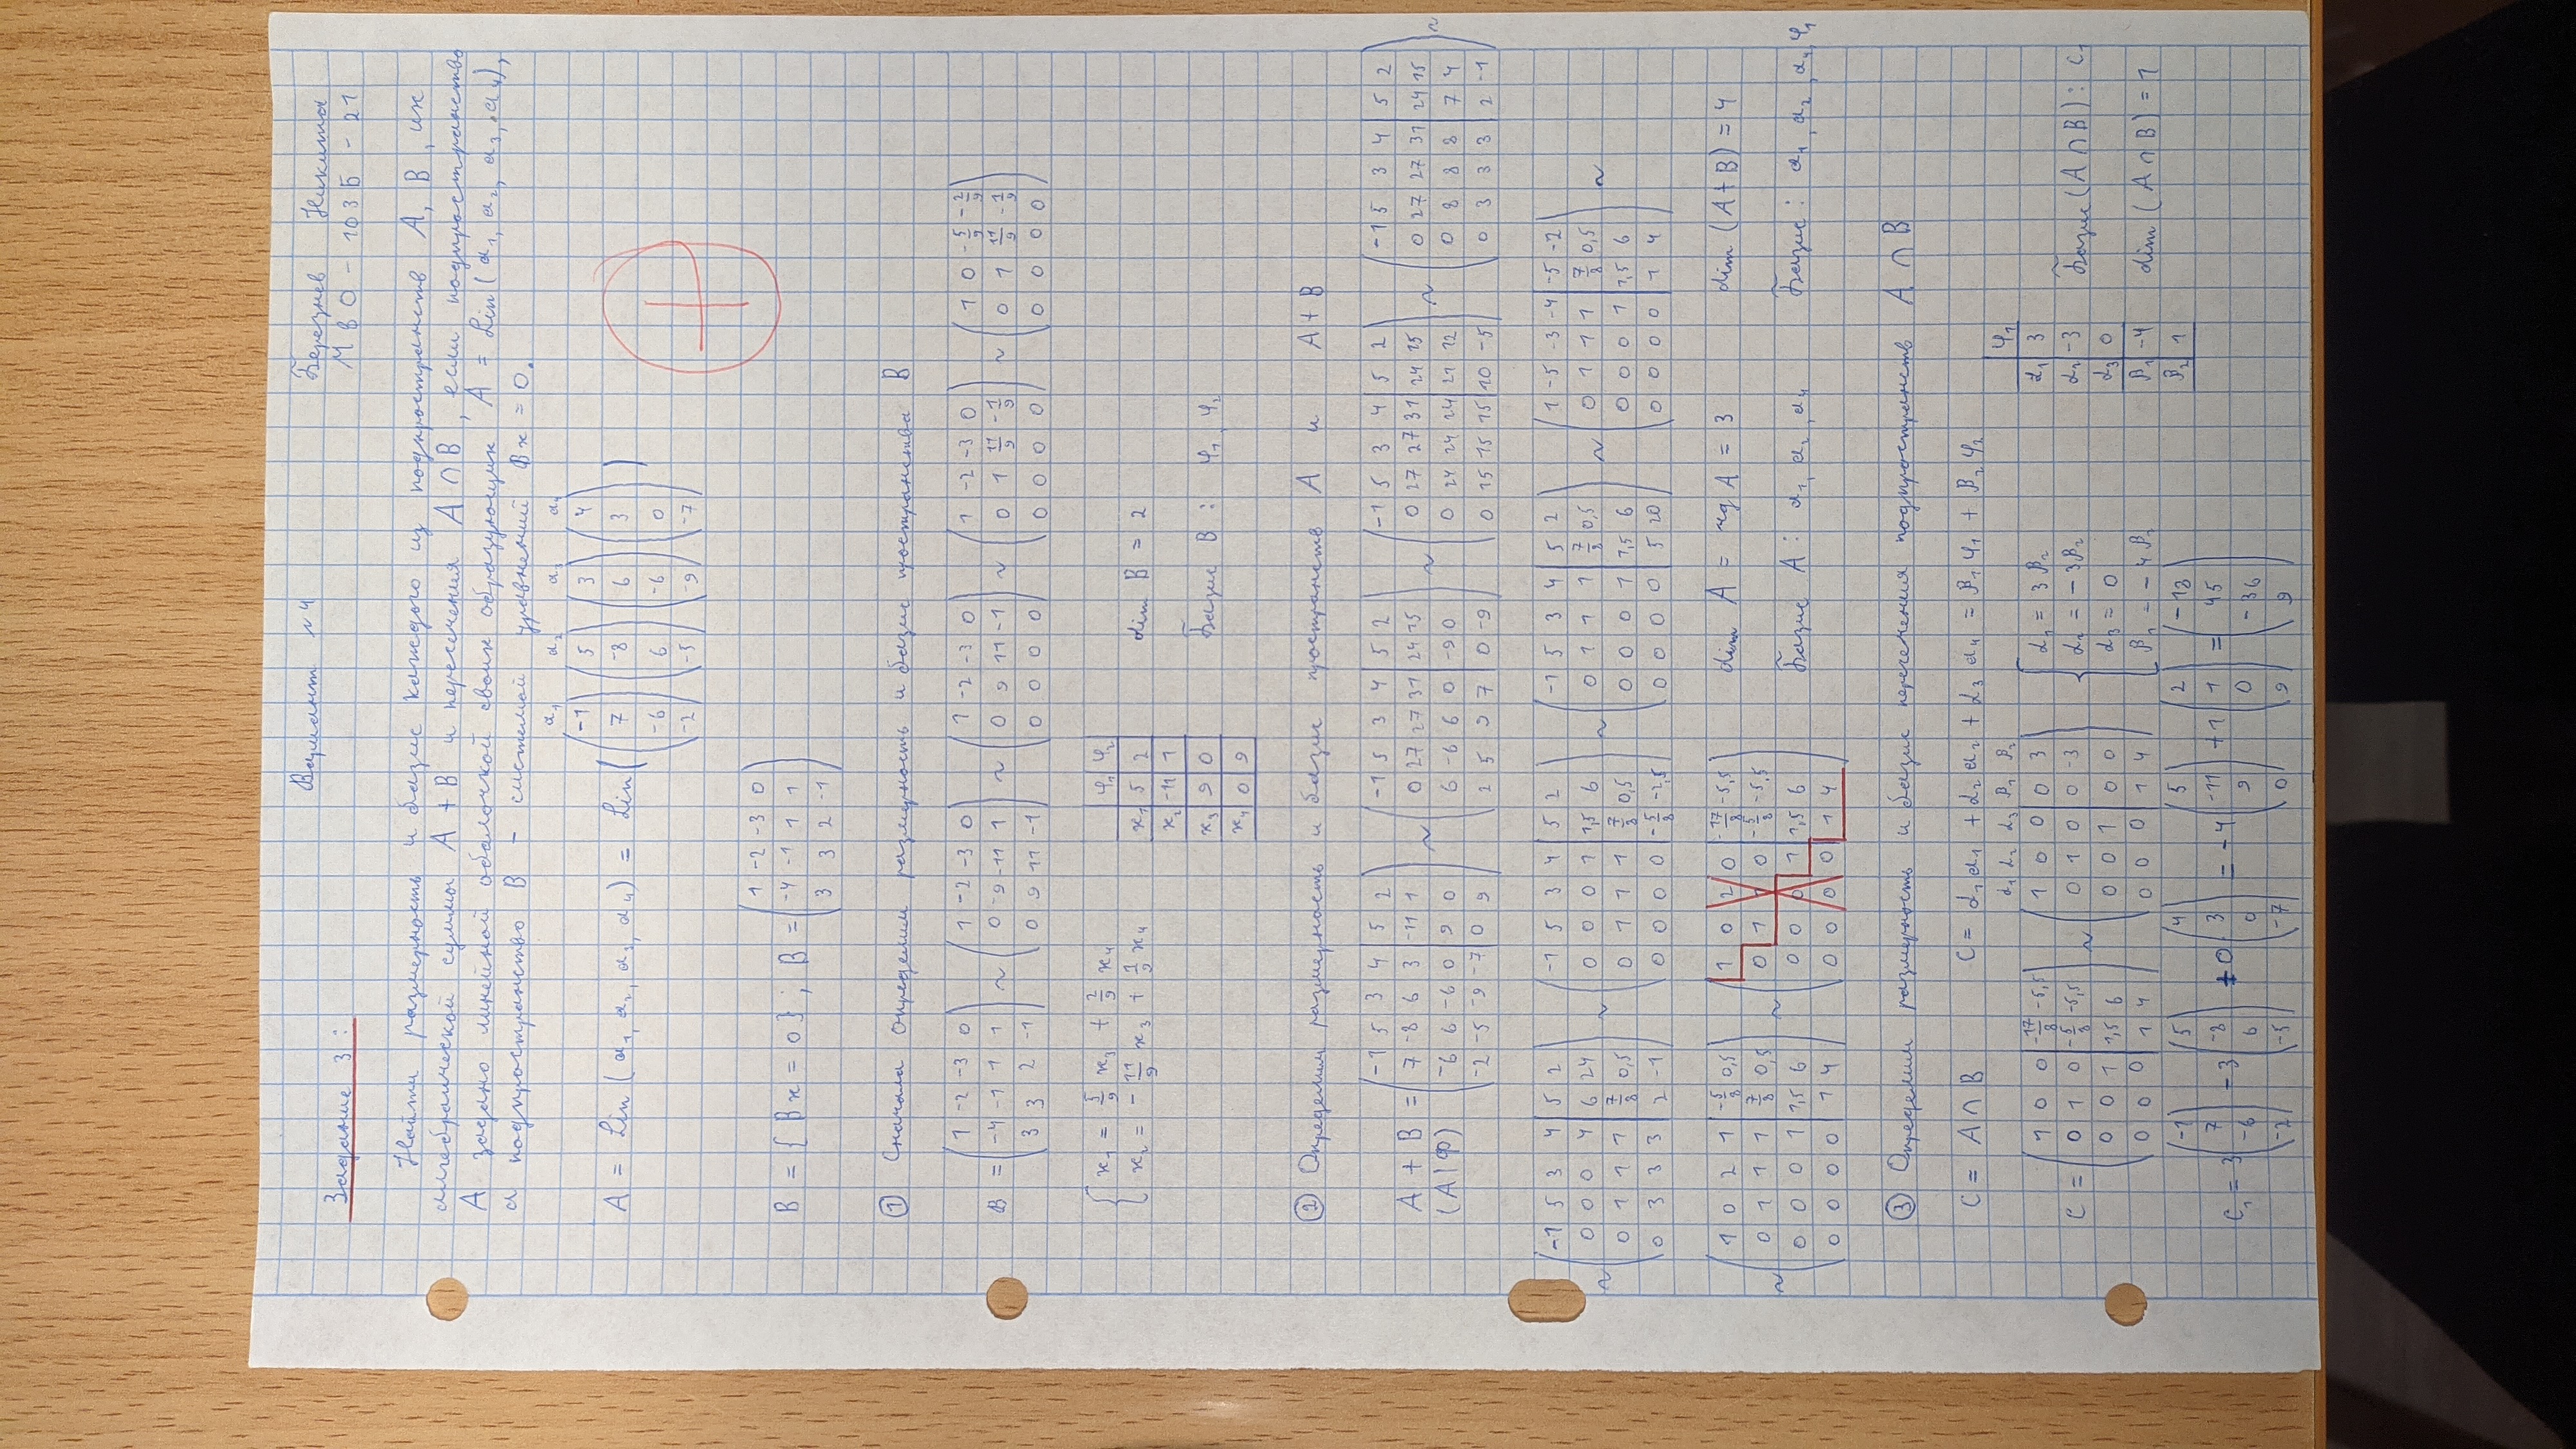 Вариант №4
Березнев Никита
М8О-103Б-21
Задание 3:
Найти размерность и базис каждого из подпространств A, B, их
алгебраической суммы A + B и пересечения A ∩ B, если подпространство
A задано линейной оболочкой своих образующих A = Lin(a₁, a₂, a₃, a₄),
а подпространство B – системой уравнений Bx = 0.
a₁ a₂ a₃ a₄
A = Lin(a₁, a₂, a₃, a₄) = Lin( (-1 7 -6 -2) (5 -8 6 -5) (3 6 -6 -9) (4 3 0 -7) )
B = { Bx = 0 } ; B = (1 -2 -3 0; -4 -1 1 1; 3 3 2 -1)
① Сначала определим размерность и базис пространства B
B = (1 -2 -3 0; -4 -1 1 1; 3 3 2 -1) ~ (1 -2 -3 0; 0 -9 -11 1; 0 9 11 -1) ~ (1 -2 -3 0; 0 9 11 -1; 0 0 0 0) ~ (1 -2 -3 0; 0 1 11/9 -1/9; 0 0 0 0) ~ (1 0 -5/9 -2/9; 0 1 11/9 -1/9; 0 0 0 0)
{ x₁ = 5/9 x₃ + 2/9 x₄
x₂ = - 11/9 x₃ + 1/9 x₄
φ₁ φ₂
x₁ 5 2
x₂ -11 1
x₃ 9 0
x₄ 0 9
dim B = 2
Базис B : φ₁, φ₂
② Определим размерность и базис пространств A и A+B
A + B = (A|Φ) (-1 5 3 4 | 5 2; 7 -8 6 3 | -11 1; -6 6 -6 0 | 9 0; -2 -5 -9 -7 | 0 9) ~ (-1 5 3 4 | 5 2; 0 27 27 31 | 24 15; 6 -6 6 0 | -9 0; 2 5 9 7 | 0 -9) ~ (-1 5 3 4 | 5 2; 0 27 27 31 | 24 15; 0 24 24 24 | 21 12; 0 15 15 15 | 10 -5) ~ (-1 5 3 4 | 5 2; 0 27 27 31 | 24 15; 0 8 8 8 | 7 4; 0 3 3 3 | 2 -1) ~
~ (-1 5 3 4 | 5 2; 0 0 0 4 | 6 24; 0 1 1 1 | 7/8 0,5; 0 3 3 3 | 2 -1) ~ (-1 5 3 4 | 5 2; 0 0 0 1 | 1,5 6; 0 1 1 1 | 7/8 0,5; 0 0 0 0 | -5/8 -2,5) ~ (-1 5 3 4 | 5 2; 0 1 1 1 | 7/8 0,5; 0 0 0 1 | 1,5 6; 0 0 0 0 | 5 20) ~ (1 -5 -3 -4 | -5 -2; 0 1 1 1 | 7/8 0,5; 0 0 0 1 | 1,5 6; 0 0 0 0 | 1 4) ~
~ (1 0 2 1 | -5/8 0,5; 0 1 1 1 | 7/8 0,5; 0 0 0 1 | 1,5 6; 0 0 0 0 | 1 4) ~ (1 0 2 0 | -17/8 -5,5; 0 1 1 0 | -5/8 -5,5; 0 0 0 1 | 1,5 6; 0 0 0 0 | 1 4)
dim A = rg A = 3
dim (A+B) = 4
Базис A : a₁, a₂, a₄
Базис : a₁, a₂, a₄, φ₁
③ Определим размерность и базис пересечения подпространств A ∩ B
C = A ∩ B
C = α₁a₁ + α₂a₂ + α₃a₄ = β₁φ₁ + β₂φ₂
α₁ α₂ α₃ β₁ β₂
C = (1 0 0 | -17/8 -5,5; 0 1 0 | -5/8 -5,5; 0 0 1 | 1,5 6; 0 0 0 | 1 4) ~ (1 0 0 | 0 3; 0 1 0 | 0 -3; 0 0 1 | 0 0; 0 0 0 | 1 4)
{ α₁ = 3β₂
α₂ = -3β₂
α₃ = 0
β₁ = -4β₂
φ₁
α₁ 3
α₂ -3
α₃ 0
β₁ -4
β₂ 1
Базис (A ∩ B) : c₁
dim (A ∩ B) = 1
c₁ = 3 (-1 7 -6 -2) - 3 (5 -8 6 -5) + 0 (4 3 0 -7) = -4 (5 -11 9 0) + 1 (2 1 0 9) = (-18 45 -36 9)